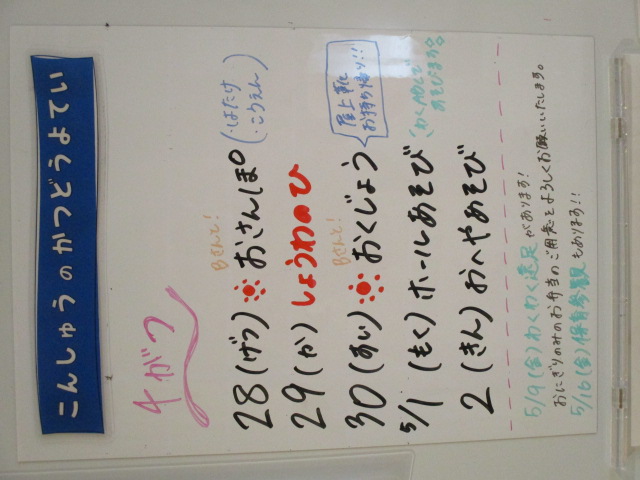 こんしゅうのかつどうよてい
4がつ
Bさんと!
28(げつ)※おさんぽ
(・はたけ
・こうえん)
29(か)しょうわのひ
Bさんと!
30(すい)※おくじょう
屋上靴
お持ち帰り!!
5/1(もく)ホールあそび
あそびます
2(きん)おへやあそび
5/9(金)わくわく遠足があります!
おにぎりのみのお弁当のご用意をよろしくお願いいたします。
5/16(金)保育参観もあります!!